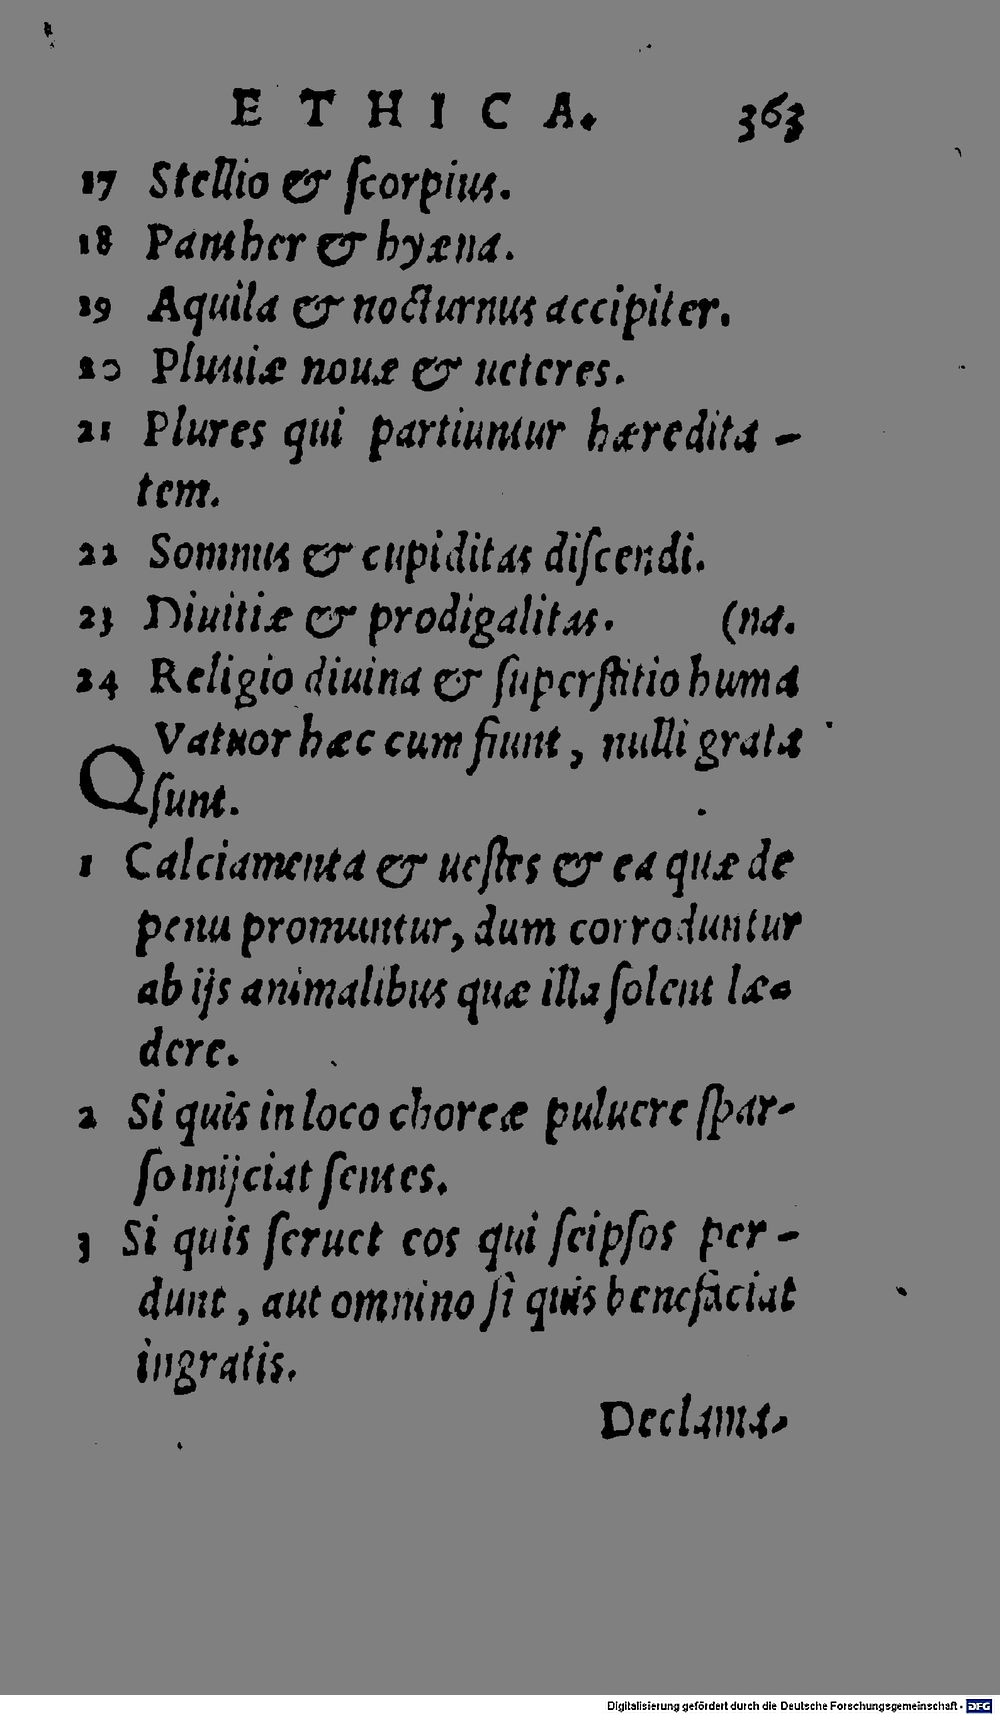 ETHICA. 363
17 Stellio & ſcorpius.
18 Panther & hyæna.
19 Aquila & nocturnus accipiter.
20 Pluuiæ nouæ & ueteres.
21 Plures qui partiuntur hæredita-
tem.
22 Somnus & cupiditas diſcendi.
23 Diuitiæ & prodigalitas. (na.
24 Religio diuina & ſuperſtitio huma
QVatuor hæc cum fiunt, nulli grata
ſunt.
1 Calciamenta & ueſtes & ea quæ de
penu promuntur, dum corroduntur
ab ijs animalibus quæ illa ſolent læ-
dere.
2 Si quis in loco choreæ puluere ſpar-
ſo inijciat ſentes.
3 Si quis ſeruet eos qui ſeipſos per-
dunt, aut omnino ſi quis benefaciat
ingratis.
Declama-
Digitalisierung gefördert durch die Deutsche Forschungsgemeinschaft - DFG